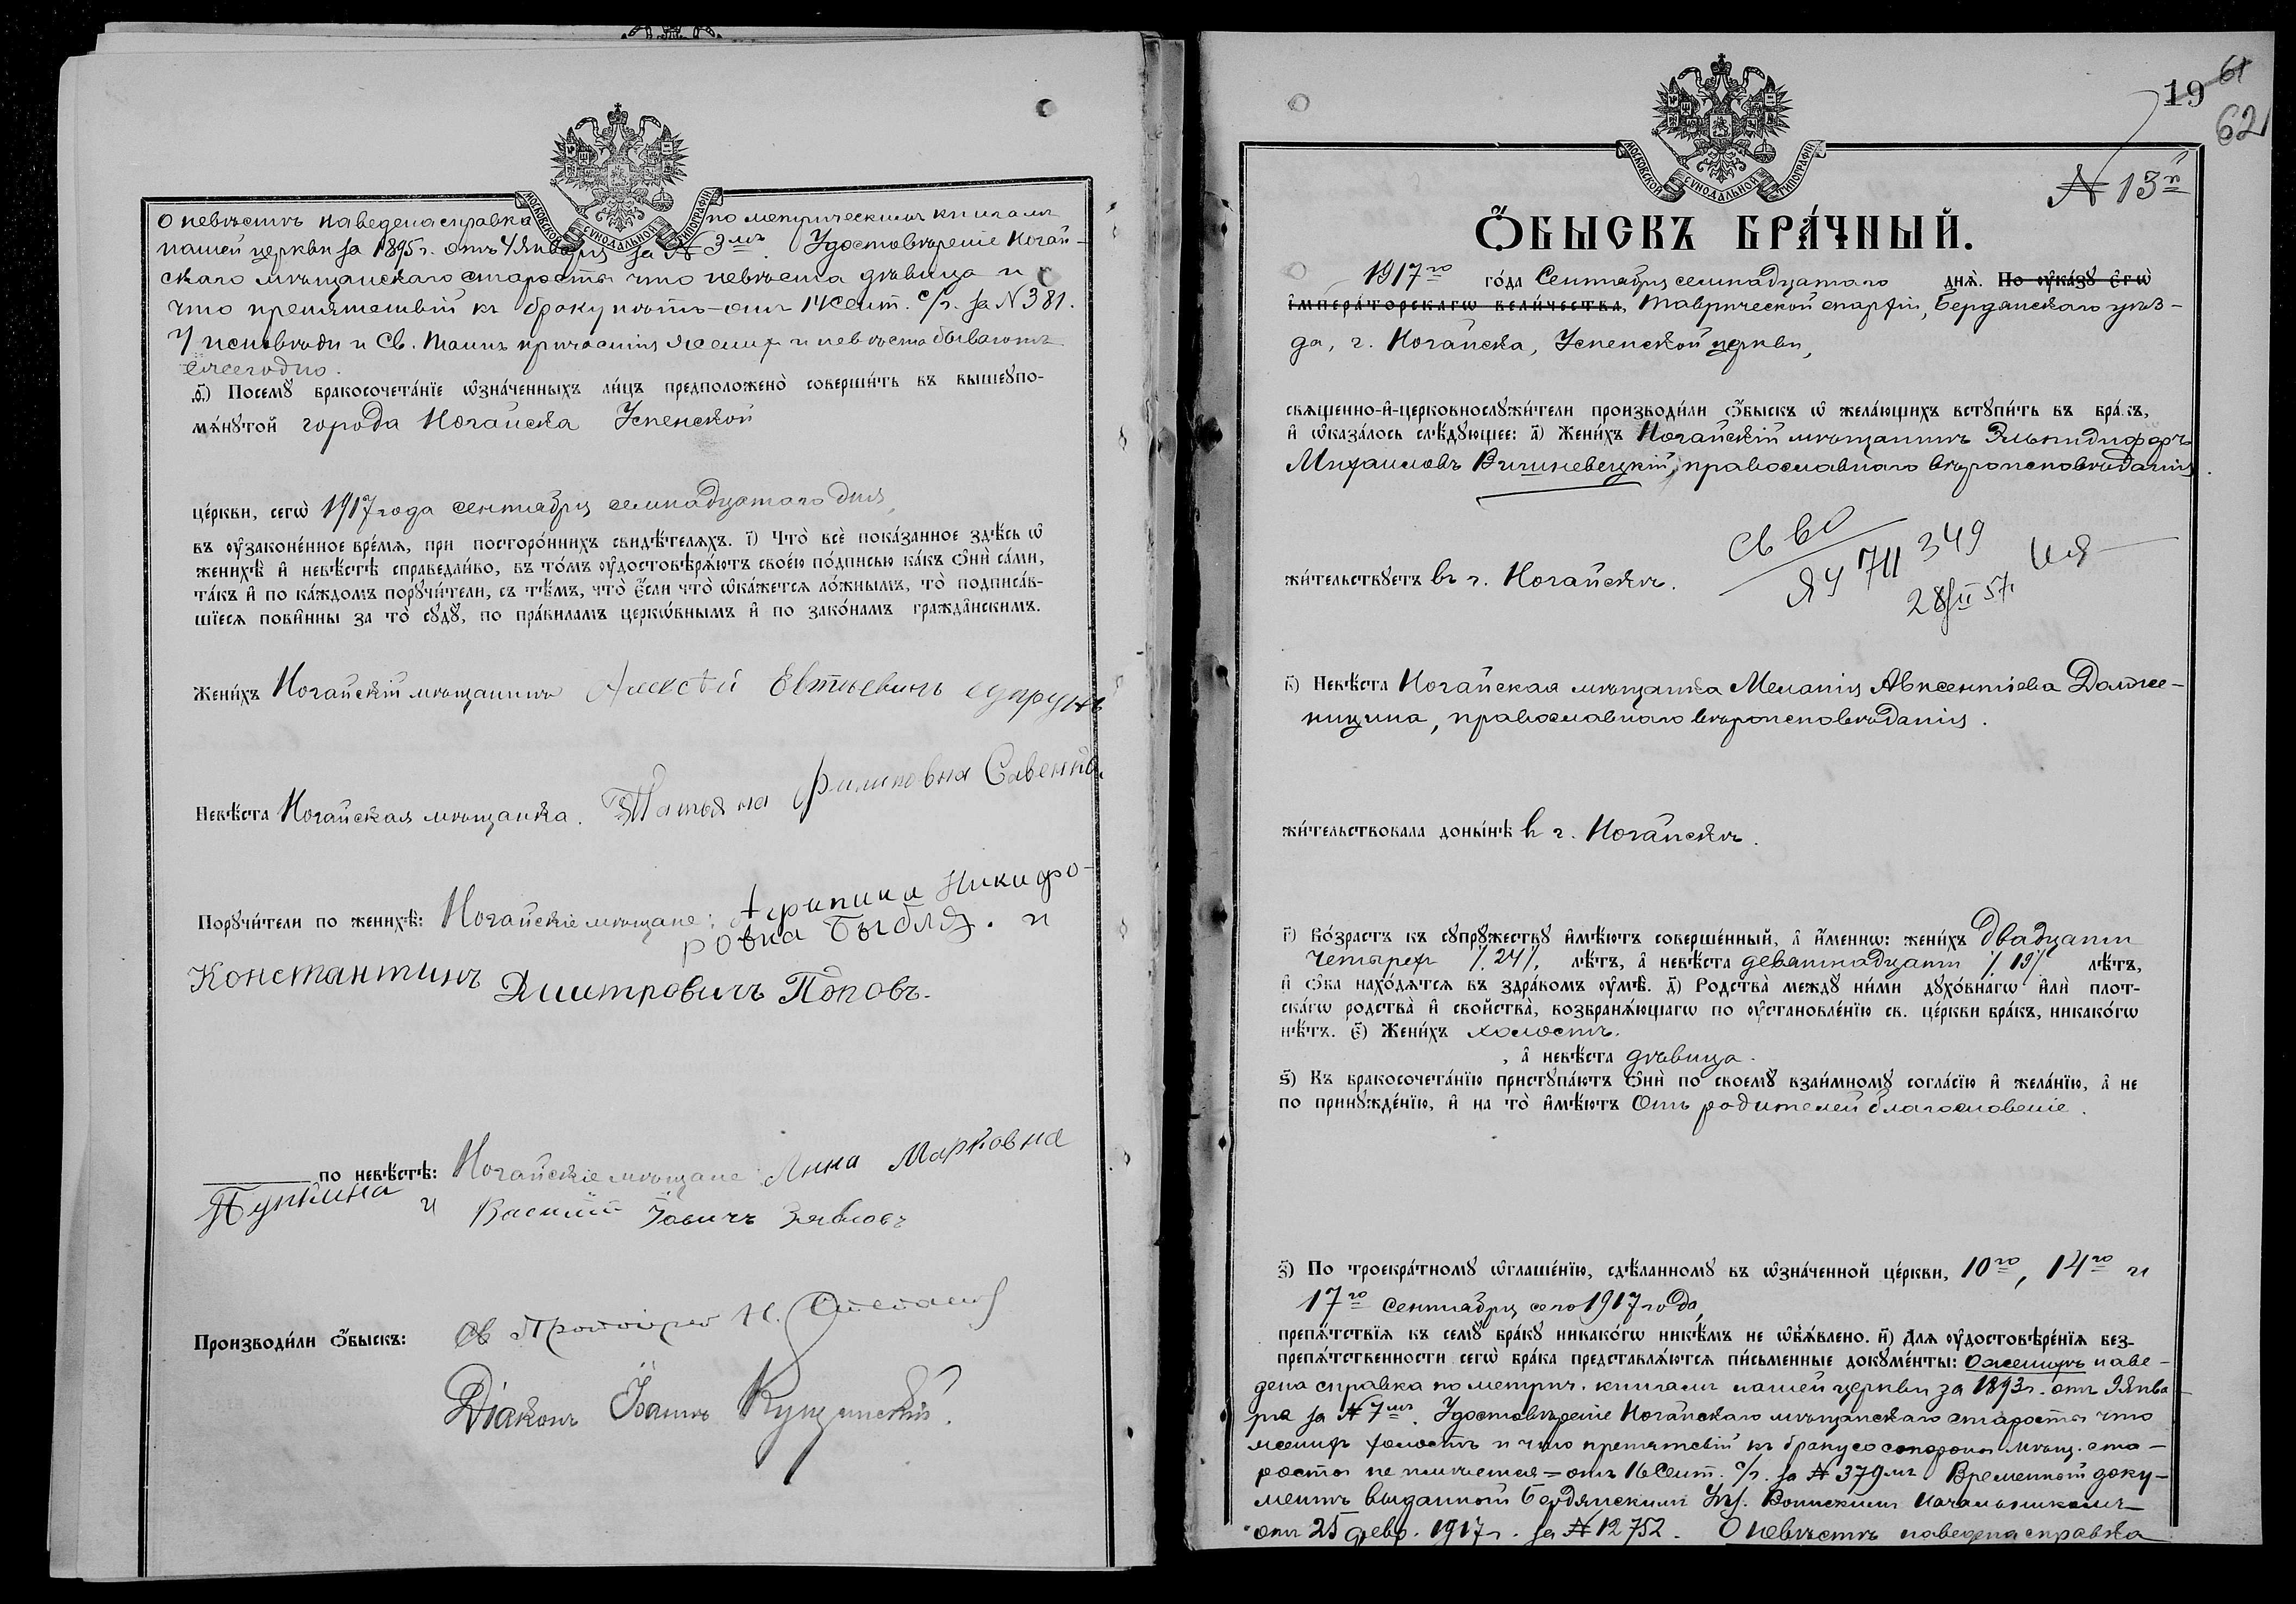 МОСКОВСКОЙ СѴНОДАЛЬНОЙ ТИПОГРАФІИ
О невѣстѣ наведена справка по метрическимъ книгамъ
нашей церкви за 1895 г. отъ 4 Января за № 3мъ. Удостовѣреніе Ногай-
скаго мѣщанскаго старосты что невѣста дѣвица и
что препятствій къ браку нѣтъ – отъ 17 Сент. с/г. за № 381.
У исповѣди и Св. Таинъ причастія женихъ и невѣста бываютъ
ежегодно.
ѳ҃) Посемꙋ̀ бракосочета́нїе ѡ҆зна́ченныхъ ли́цъ предположено̀ соверши́ть въ вышеꙋпо-
мѧ́нꙋтой города Ногайска Успенской
це́ркви, сегѡ̀ 1917 года сентября семнадцатаго дня,
въ ᲂу҆законе́нное вре́мѧ, при посторо́ннихъ свидѣ́телѧхъ. і҃) Что̀ всѐ пока́занное здѣ́сь ѡ҆
женихѣ̀ и҆ невѣ́стѣ справедли́во, въ то́мъ ᲂу҆достовѣрѧ́ютъ свое́ю по́дписью ка́къ ѻ҆нѝ са́ми,
та́къ и҆ по ка́ждомъ порꙋчи́тели, съ тѣ́мъ, что̀ є҆́сли что̀ ѡ҆ка́жется ло́жнымъ, то̀ подписа́в-
шїесѧ пови́нны за то̀ сꙋдꙋ̀, по пра́виламъ церко́внымъ и҆ по зако́намъ гражда́нскимъ.
Жени́хъ Ногайскій мѣщанинъ Алексѣй Евтіевичъ Супрунъ
Невѣ́ста Ногайская мѣщанка. Татьяна Филиповна
Порꙋчи́тели по женихѣ̀: Ногайскіе мѣщане: Агрипина Никифо-
ровна Быбля. и
Константинъ Дмитровичъ Поповъ.
по невѣ́стѣ: Ногайскіе мѣщане Анна Марковна
и Василій
Производи́ли ѻ҆́быскъ: Св Протоіерей Н.
Діаконъ Іоаннъ
19 61
62
МОСКОВСКОЙ СѴНОДАЛЬНОЙ ТИПОГРАФІИ
№ 13й
Ѻ҆́БЫСКЪ БРА́ЧНЫЙ.
1917го го́да Сентября семнадцатаго днѧ̀. По ᲂу҆ка́зꙋ є҆гѡ̀
и҆мпера́торскагѡ вели́чества, Таврической епархіи, Бердянскаго уѣз-
да, г. Ногайска, Успенской церкви,
свѧщенно-и҆-церковнослꙋжи́тели производи́ли ѻ҆́быскъ ѡ҆ жела́ющихъ встꙋпи́ть въ бра́къ,
и҆ ѡ҆каза́лось слѣ́дꙋющее: а҃) Жени́хъ Ногайскій мѣщанинъ Эльпидифоръ
Михаиловъ Вишневецкій, православнаго вѣроисповѣданія
св во
ЯЧ 711349
28/II 57.
жи́тельствꙋетъ въ г. Ногайскѣ.
в҃) Невѣ́ста Ногайская мѣщанка Меланія Авксентіева Долже-
ницина, православнаго вѣроисповѣданія.
жи́тельствовала доны́нѣ въ г. Ногайскѣ.
г҃) Во́зрастъ къ сꙋпрꙋ́жествꙋ и҆мѣ́ютъ соверше́нный, а҆ и҆́менно: жени́хъ двадцати
четырехъ /24/. лѣ́тъ, а҆ невѣ́ста девятнадцати /19/ лѣ́тъ,
и҆ ѻ҆́ба нахо́дѧтсѧ въ здра́вомъ ᲂу҆мѣ̀. д҃) Родства̀ междꙋ̀ ни́ми дꙋхо́внагѡ и҆лѝ плот-
ска́гѡ родства̀ и҆ сво́йства, возбранѧ́ющагѡ по ᲂу҆становле́нїю св. це́ркви бра́къ, никако́гѡ
нѣ́тъ. є҃) Жени́хъ холостъ.
, а҆ невѣ́ста дѣвица.
ѕ҃) Къ бракосочета́нїю пристꙋпа́ютъ ѻ҆нѝ по своемꙋ̀ взаи́мномꙋ согла́сїю и҆ жела́нїю, а҆ не
по принꙋжде́нїю, и҆ на то̀ и҆мѣ́ютъ Отъ родителей благословеніе.
з҃) По троекра́тномꙋ ѡ҆глаше́нїю, сдѣ́ланномꙋ въ ѡ҆зна́ченной це́ркви, 10го, 14го и
17го сентября сего 1917 года,
препѧ́тствїѧ къ семꙋ̀ бра́кꙋ никако́гѡ никѣ́мъ не ѡ҆б̾ѧ́влено. и҃) Длѧ ᲂу҆достовѣре́нїѧ без-
препѧ́тственности сегѡ̀ бра́ка представлѧ́ютсѧ пи́сьменные докꙋме́нты: О женихѣ наве-
дена справка по метрич. книгамъ нашей церкви за 1893 г. отъ 9 Янва-
ря за № 7мъ. Удостовѣреніе Ногайскаго мѣщанскаго старосты что
женихъ холостъ и что препятствій къ браку со стороны мѣщ. ста-
росты не имѣется = отъ 16 Сент. с/г. за № 379мъ Временный доку-
ментъ выданный Бердянскимъ Уѣз. Воинскимъ Начальникомъ
отъ 25 февр. 1917 г. за № 12752. О невѣстѣ наведена справка